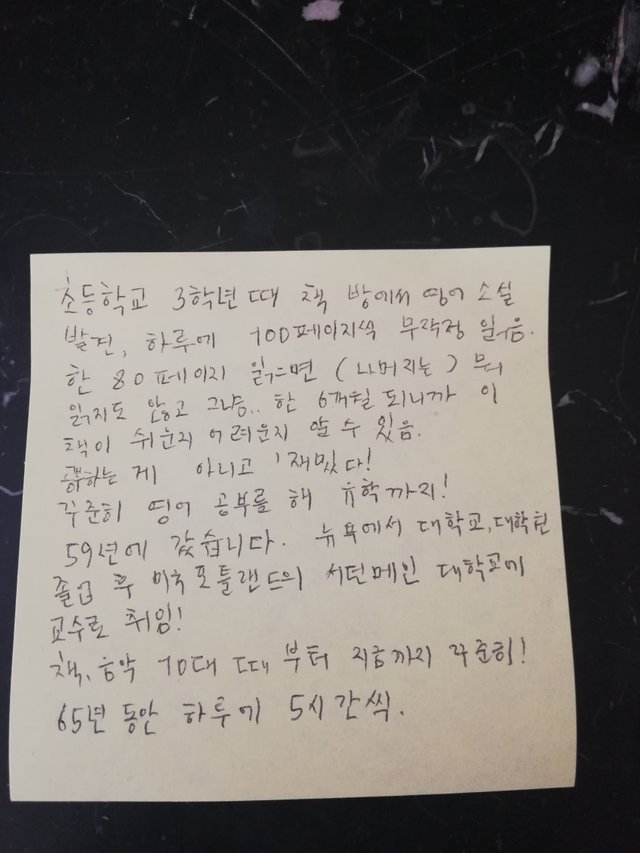 초등학교 3학년 때 책 방에서 영어 소설
발견, 하루에 100페이지씩 무작정 읽음.
한 80페이지 읽으면 (나머지는) 뭐
읽지도 않고 그냥.. 한 6개월 되니까 이
책이 쉬운지 어려운지 알 수 있음.
하는 게 아니고 '재밌다!
꾸준히 영어 공부를 해 유학까지!
59년에 갔습니다. 뉴욕에서 대학교, 대학원
졸업 후 미국 포틀랜드의 서던메인 대학교에
교수로 취임!
책, 음악 10대 때 부터 지금까지 꾸준히!
65년 동안 하루에 5시간씩.